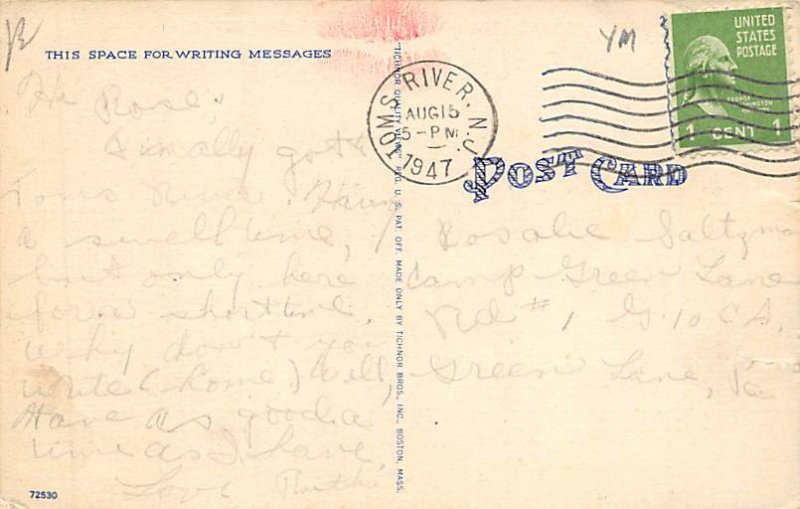 YM
THIS SPACE FOR WRITING MESSAGES
UNITED
STATES
POSTAGE
1 CENT 1
TOMS RIVER, N.J.
AUG 15
5-PM
1947
POST CARD
Hi Rose,
Finally got to
Toms River. Having
a swell time,
but only here
for a short time.
Why don't you
write (home.) Well,
Have as good a
time as I have
Love Ruthie
Rosalie Saltzman
Camp Green Lane
Rd #1 G.10 CA.
Green Lane, Pa
"TICHNOR QUALITY VIEWS" REG. U. S. PAT. OFF. MADE ONLY BY TICHNOR BROS., INC., BOSTON, MASS.
72530